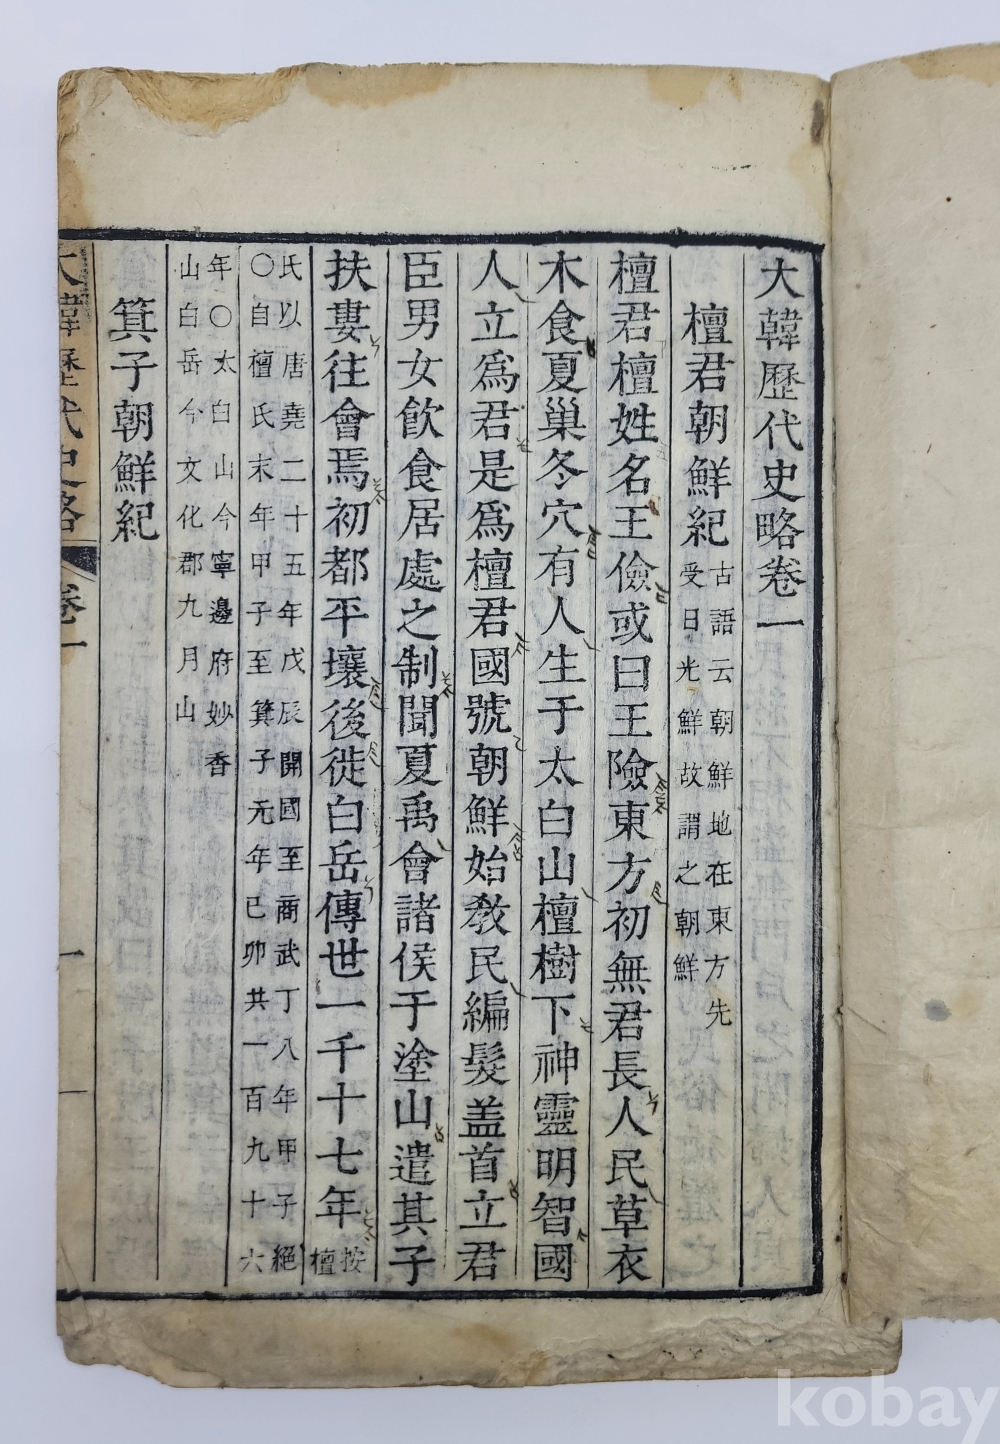 大韓歷代史略卷一
檀君朝鮮紀
古語云朝鮮地在東方先
受日光鮮故謂之朝鮮
檀君檀姓名王儉或曰王險東方初無君長人民草衣
木食夏巢冬穴有人生于太白山檀樹下神靈明智國
人立爲君是爲檀君國號朝鮮始敎民編髮盖首立君
臣男女飮食居處之制聞夏禹會諸侯于塗山遣其子
扶婁往會焉初都平壤後徙白岳傳世一千十七年
按
檀
氏以唐堯二十五年戊辰開國至商武丁八年甲子絕
〇自檀氏末年甲子至箕子元年己卯共一百九十六
年〇太白山今寧邊府妙香
山白岳今文化郡九月山
箕子朝鮮紀
大韓歷代史略 卷一 一
kobay